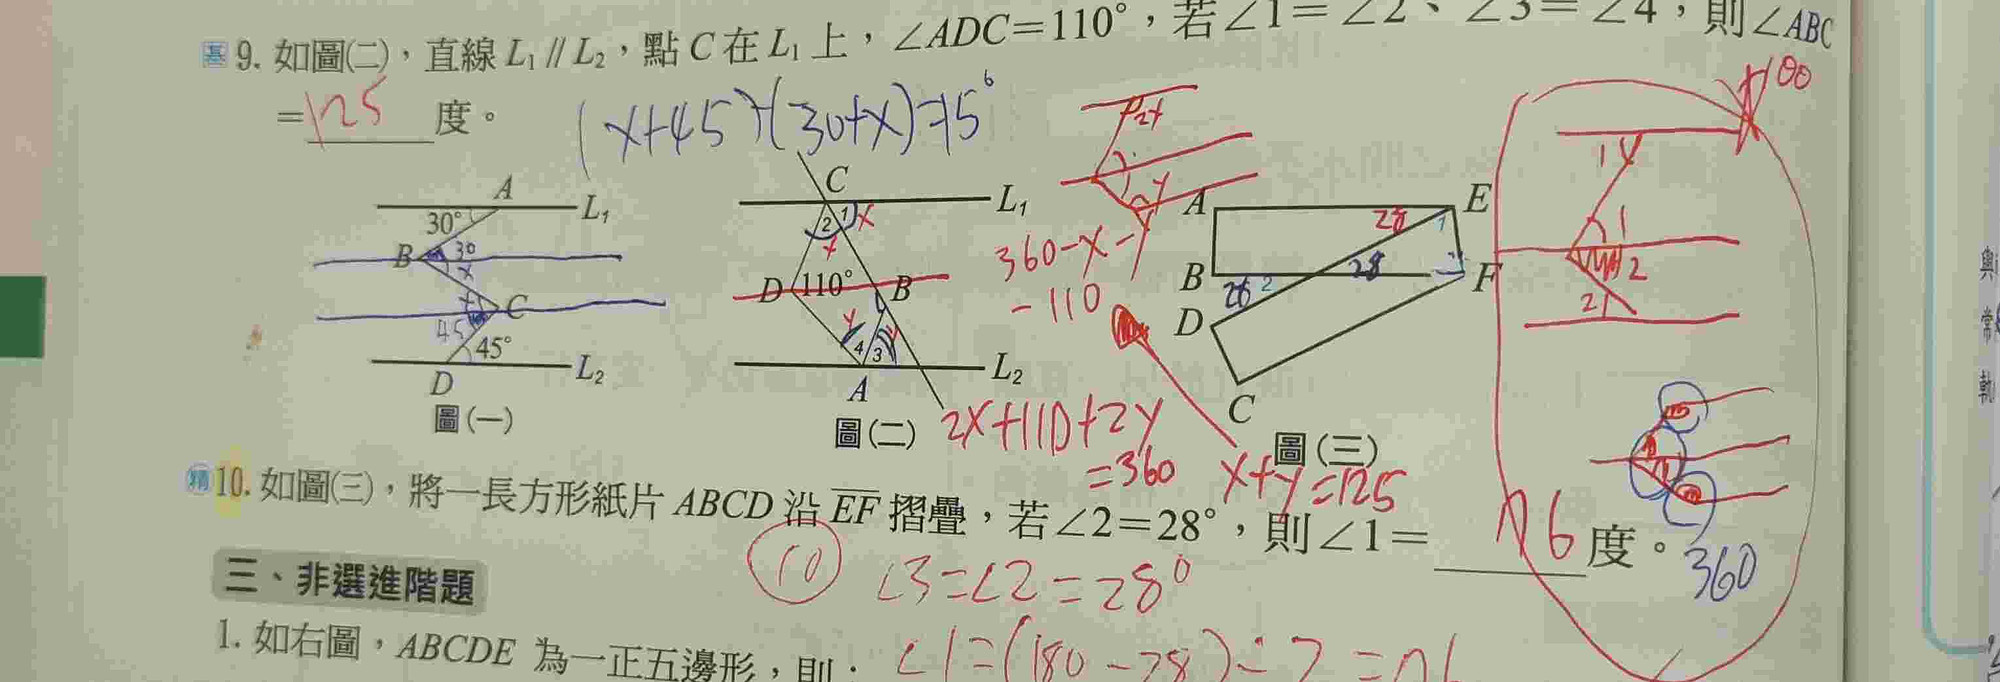 基 9. 如圖(二)，直線 L₁ // L₂，點 C 在 L₁ 上，∠ADC＝110°，若∠1＝∠2、∠3＝∠4，則∠ABC
＝125 度。
(x+45)-(30+x)=15°
A
30°
L₁
B
30
x
x
C
45
45°
D
L₂
圖(一)
C
L₁
2
1
x
x
D
110°
B
y
y
4
3
A
L₂
圖(二)
2x+110+2y
=360
x+y=125
360-x-y
-110
A
28
E
1
B
28
2
28
F
D
C
圖(三)
1
1
2
2
360
精 10. 如圖(三)，將一長方形紙片 ABCD 沿 EF 摺疊，若∠2＝28°，則∠1＝ 76 度。
(10) ∠3=∠2=28°
∠1=(180-28)÷2=76
三、非選進階題
1. 如右圖，ABCDE 為一正五邊形，則：